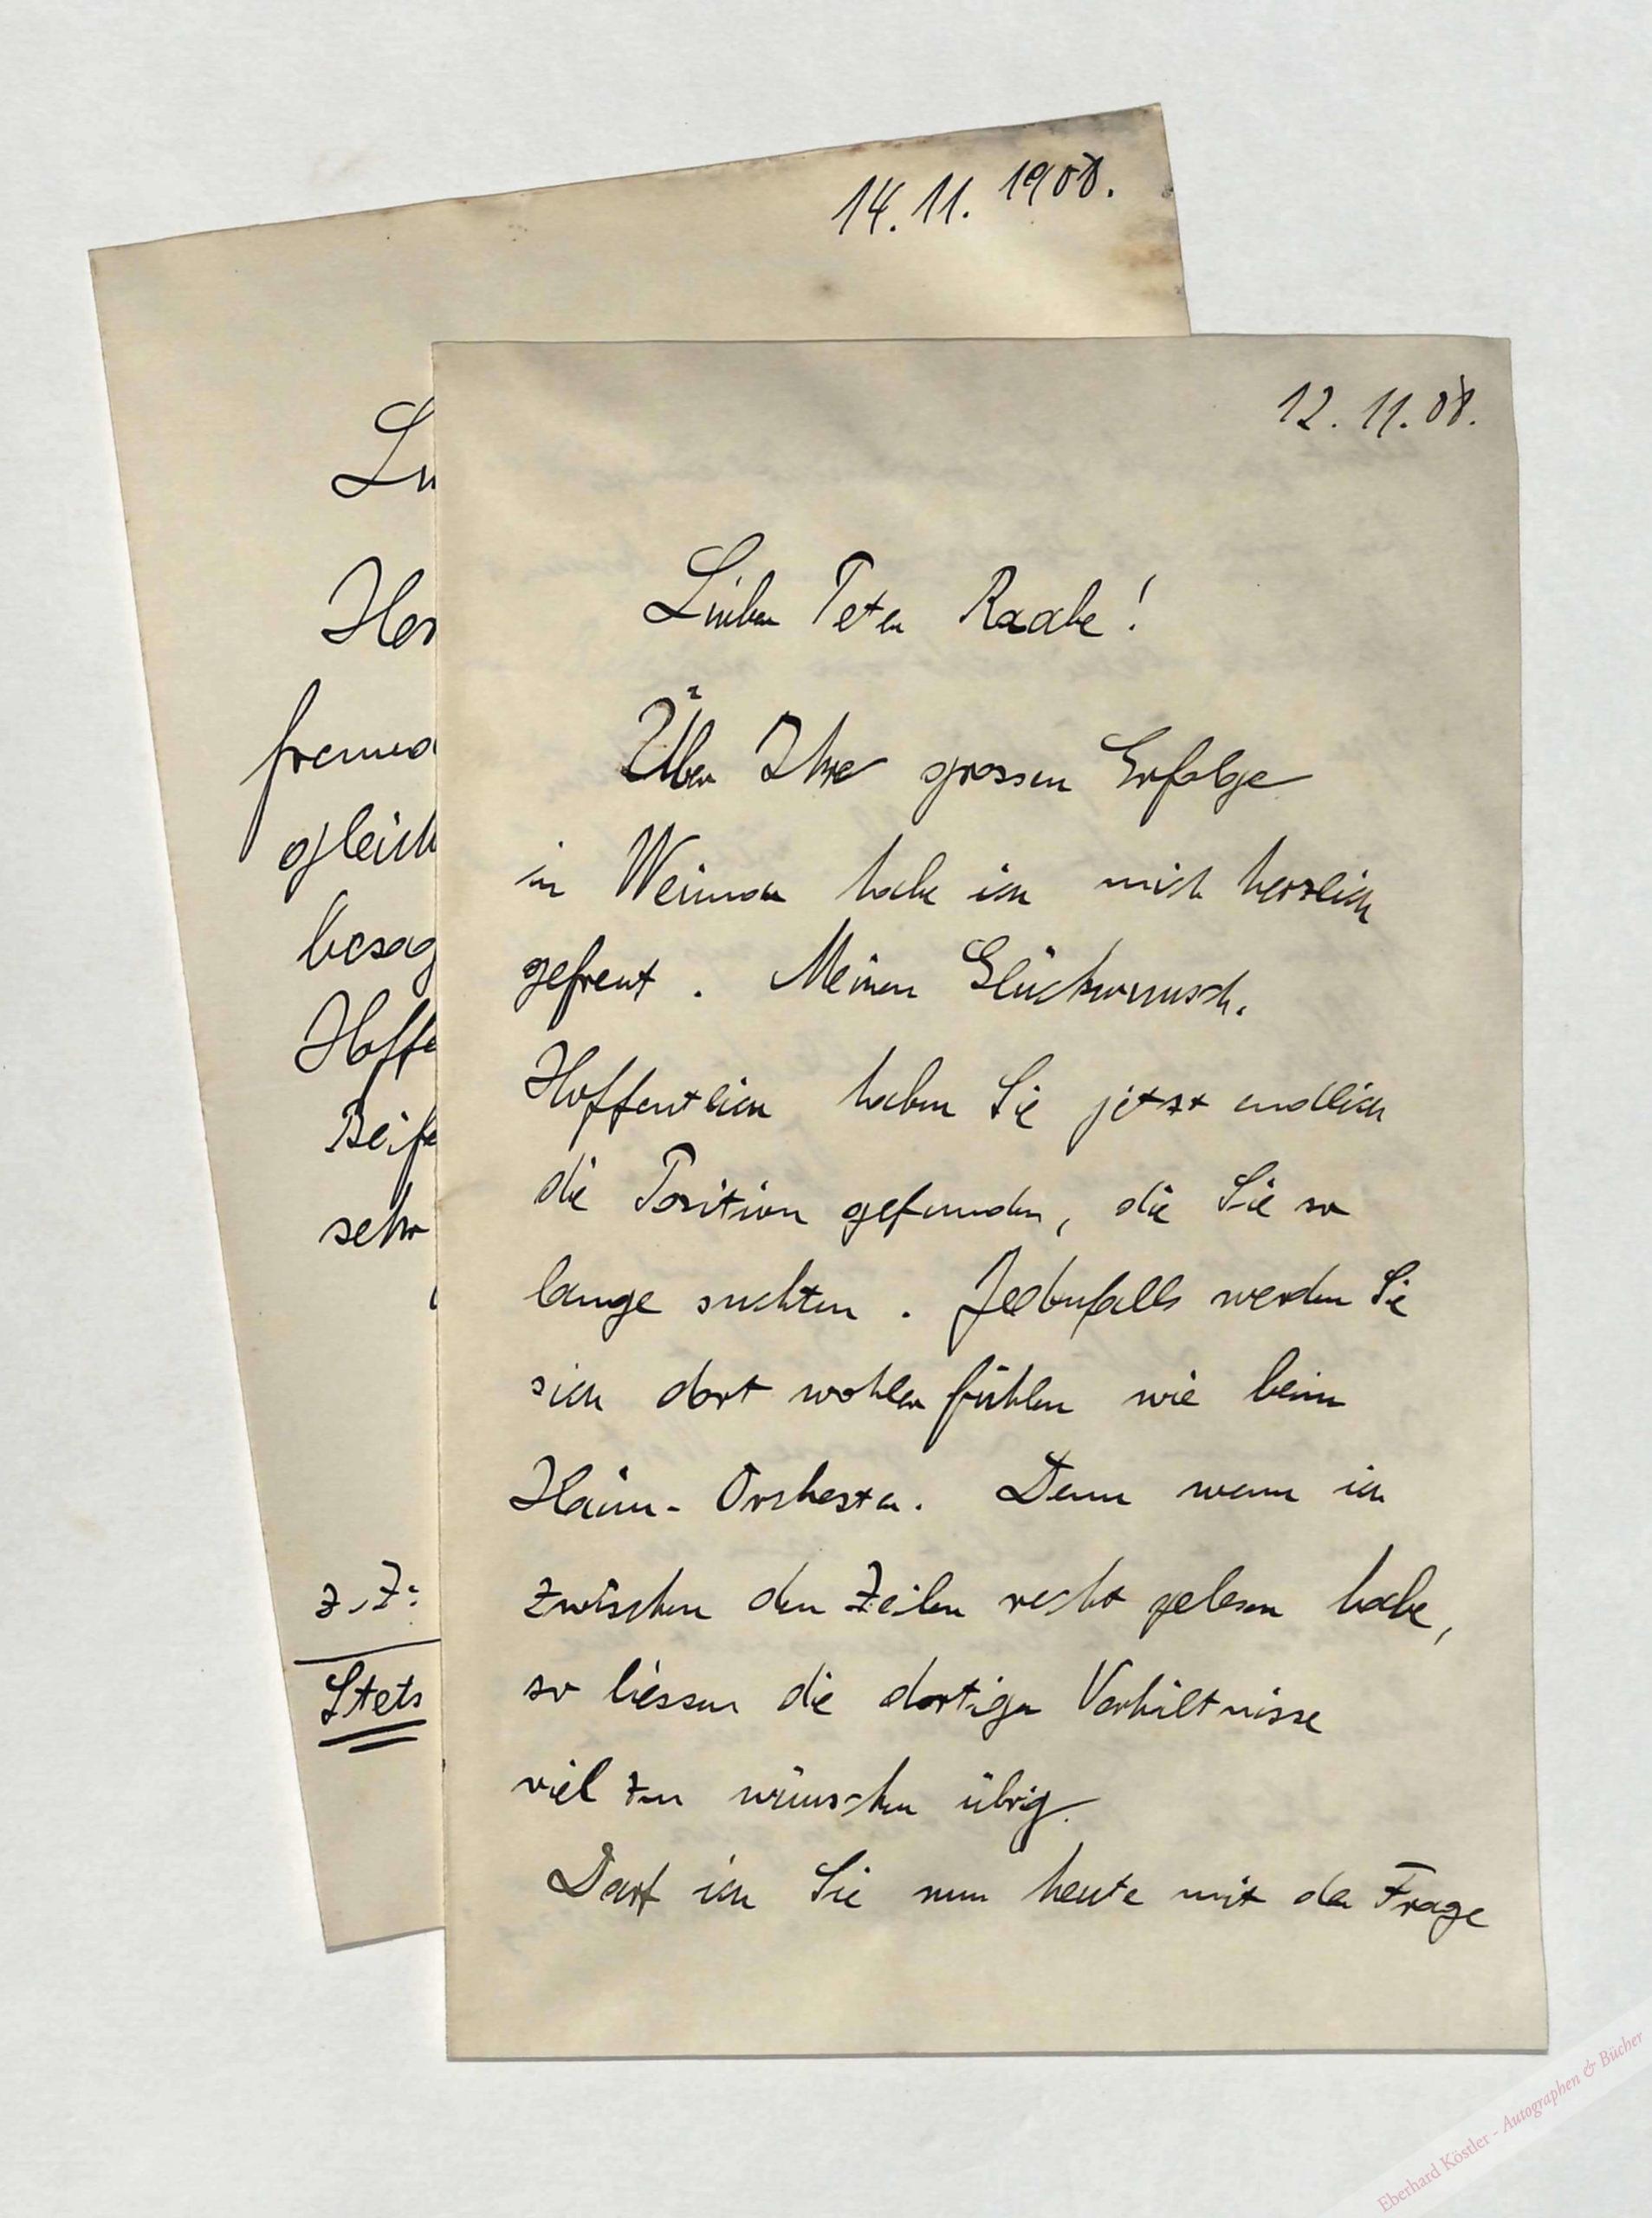 14. 11. 1908.
Li
Her
freund
gleich
besag
Hoffe
Beifa
sehr
z. Z:
Stets
12. 11. 08.
Lieber Peter Raabe!
Über Ihre grossen Erfolge
in Weimar habe ich mich herzlich
gefreut. Meinen Glückwunsch.
Hoffentlich haben Sie jetzt endlich
die Position gefunden, die Sie so
lange suchten. Jedenfalls werden Sie
sich dort wohler fühlen wie beim
Kaim-Orchester. Denn wenn ich
zwischen den Zeilen recht gelesen habe,
so liessen die dortigen Verhältnisse
viel zu wünschen übrig.
Darf ich Sie nun heute mit der Frage
Eberhard Köstler - Autographen & Bücher